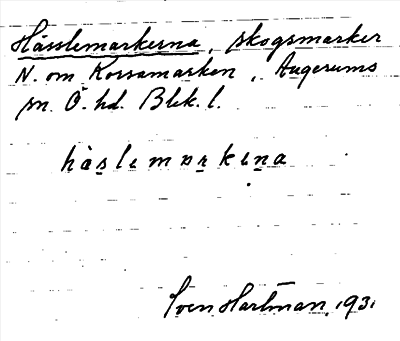 Hässlemarkerna, skogsmarker
N. om Korsamarken, Augerums
sn. Ö. hd. Blek. l.
hàslemarkena
Sven Hartman, 1931